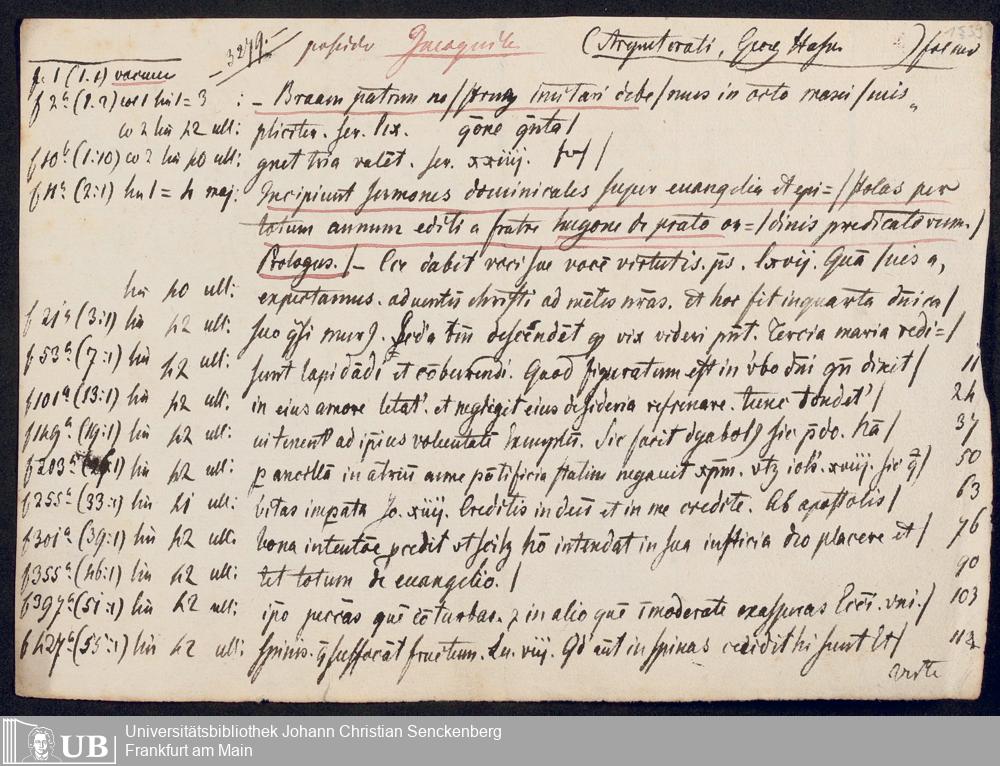 3279. possido (Argentorati, Georg Husn ) fol mo
f. 1 (1.1) vacuum
f 2ᵃ (1.2) col 1 lin 1 = 3 : – Braam patrum no / strum imitari debe / mus in octo maxi / mis
co 2 lin 42 ult: pliciter. ser. lix. qōne qnta /
f 10ᵇ (1:10) co 2 lin 40 ult: gnet tria valēt. ser. xxiiij.
(2:1) lin 1 = 4 maj: Incipiunt sermones dominicales super euangelia et epi= / stolas per
totum annum editi a fratre hugone de prato or= / dinis predicatorum. /
Prologus. / – Ecce dabit voci sue vocē virtutis. ps. lxvij. Quā
lin 40 ult: expectamus. aduentū christi ad mētes nr̄as. et hoc fit in quarta dn̄ica /
f 21ᵃ (3:1) lin 42 ult: suo descēndēt qz vix videri pn̄t. Tercia maria redi= /
f 53ᵃ (7:1) lin 42 ult: sunt lapidādi et cōburendi. Quod figuratum est in vbo dn̄i qn̄ dixit / 11
f 101ᵃ (13:1) lin 42 ult: in eius amore letat'. et negligit eius desideria refrenare. tunc tōndet' / 24
f 149ᵃ (19:1) lin 42 ult: ad ipius voluntatē Exemplū. Sic facit dyabol9 sic pdo. Nā / 37
f 203ᵃ (26:1) lin 42 ult: p ancillā in atriū anne pōtificis statim negauit xpm. vtz ioh. xviij. sic q̄ / 50
f 255ᵃ (33:1) lin 41 ult: bitas Jo. xiiij. Creditis in deū et in me credite. Ab apostolis / 63
f 301ᵃ (39:1) lin 42 ult: bona intentōe pcedit vt scilz hō intendat in sua iusticia deo placere et / 76
f 355ᵃ (46:1) lin 42 ult: tet totum de euangelio. / 90
f 397ᵃ (51:1) lin 42 ult: ipō peccās quē cōturbas. z in alio quē īmoderate exasperas Ecci. vni. / 103
f 427ᵃ (55:1) lin 42 ult: spinis. q̄ suffocāt fructum. Lu. viij. Qd aūt in spinas cecidit hi sunt Et / 112
verte
UB
Universitätsbibliothek Johann Christian Senckenberg
Frankfurt am Main